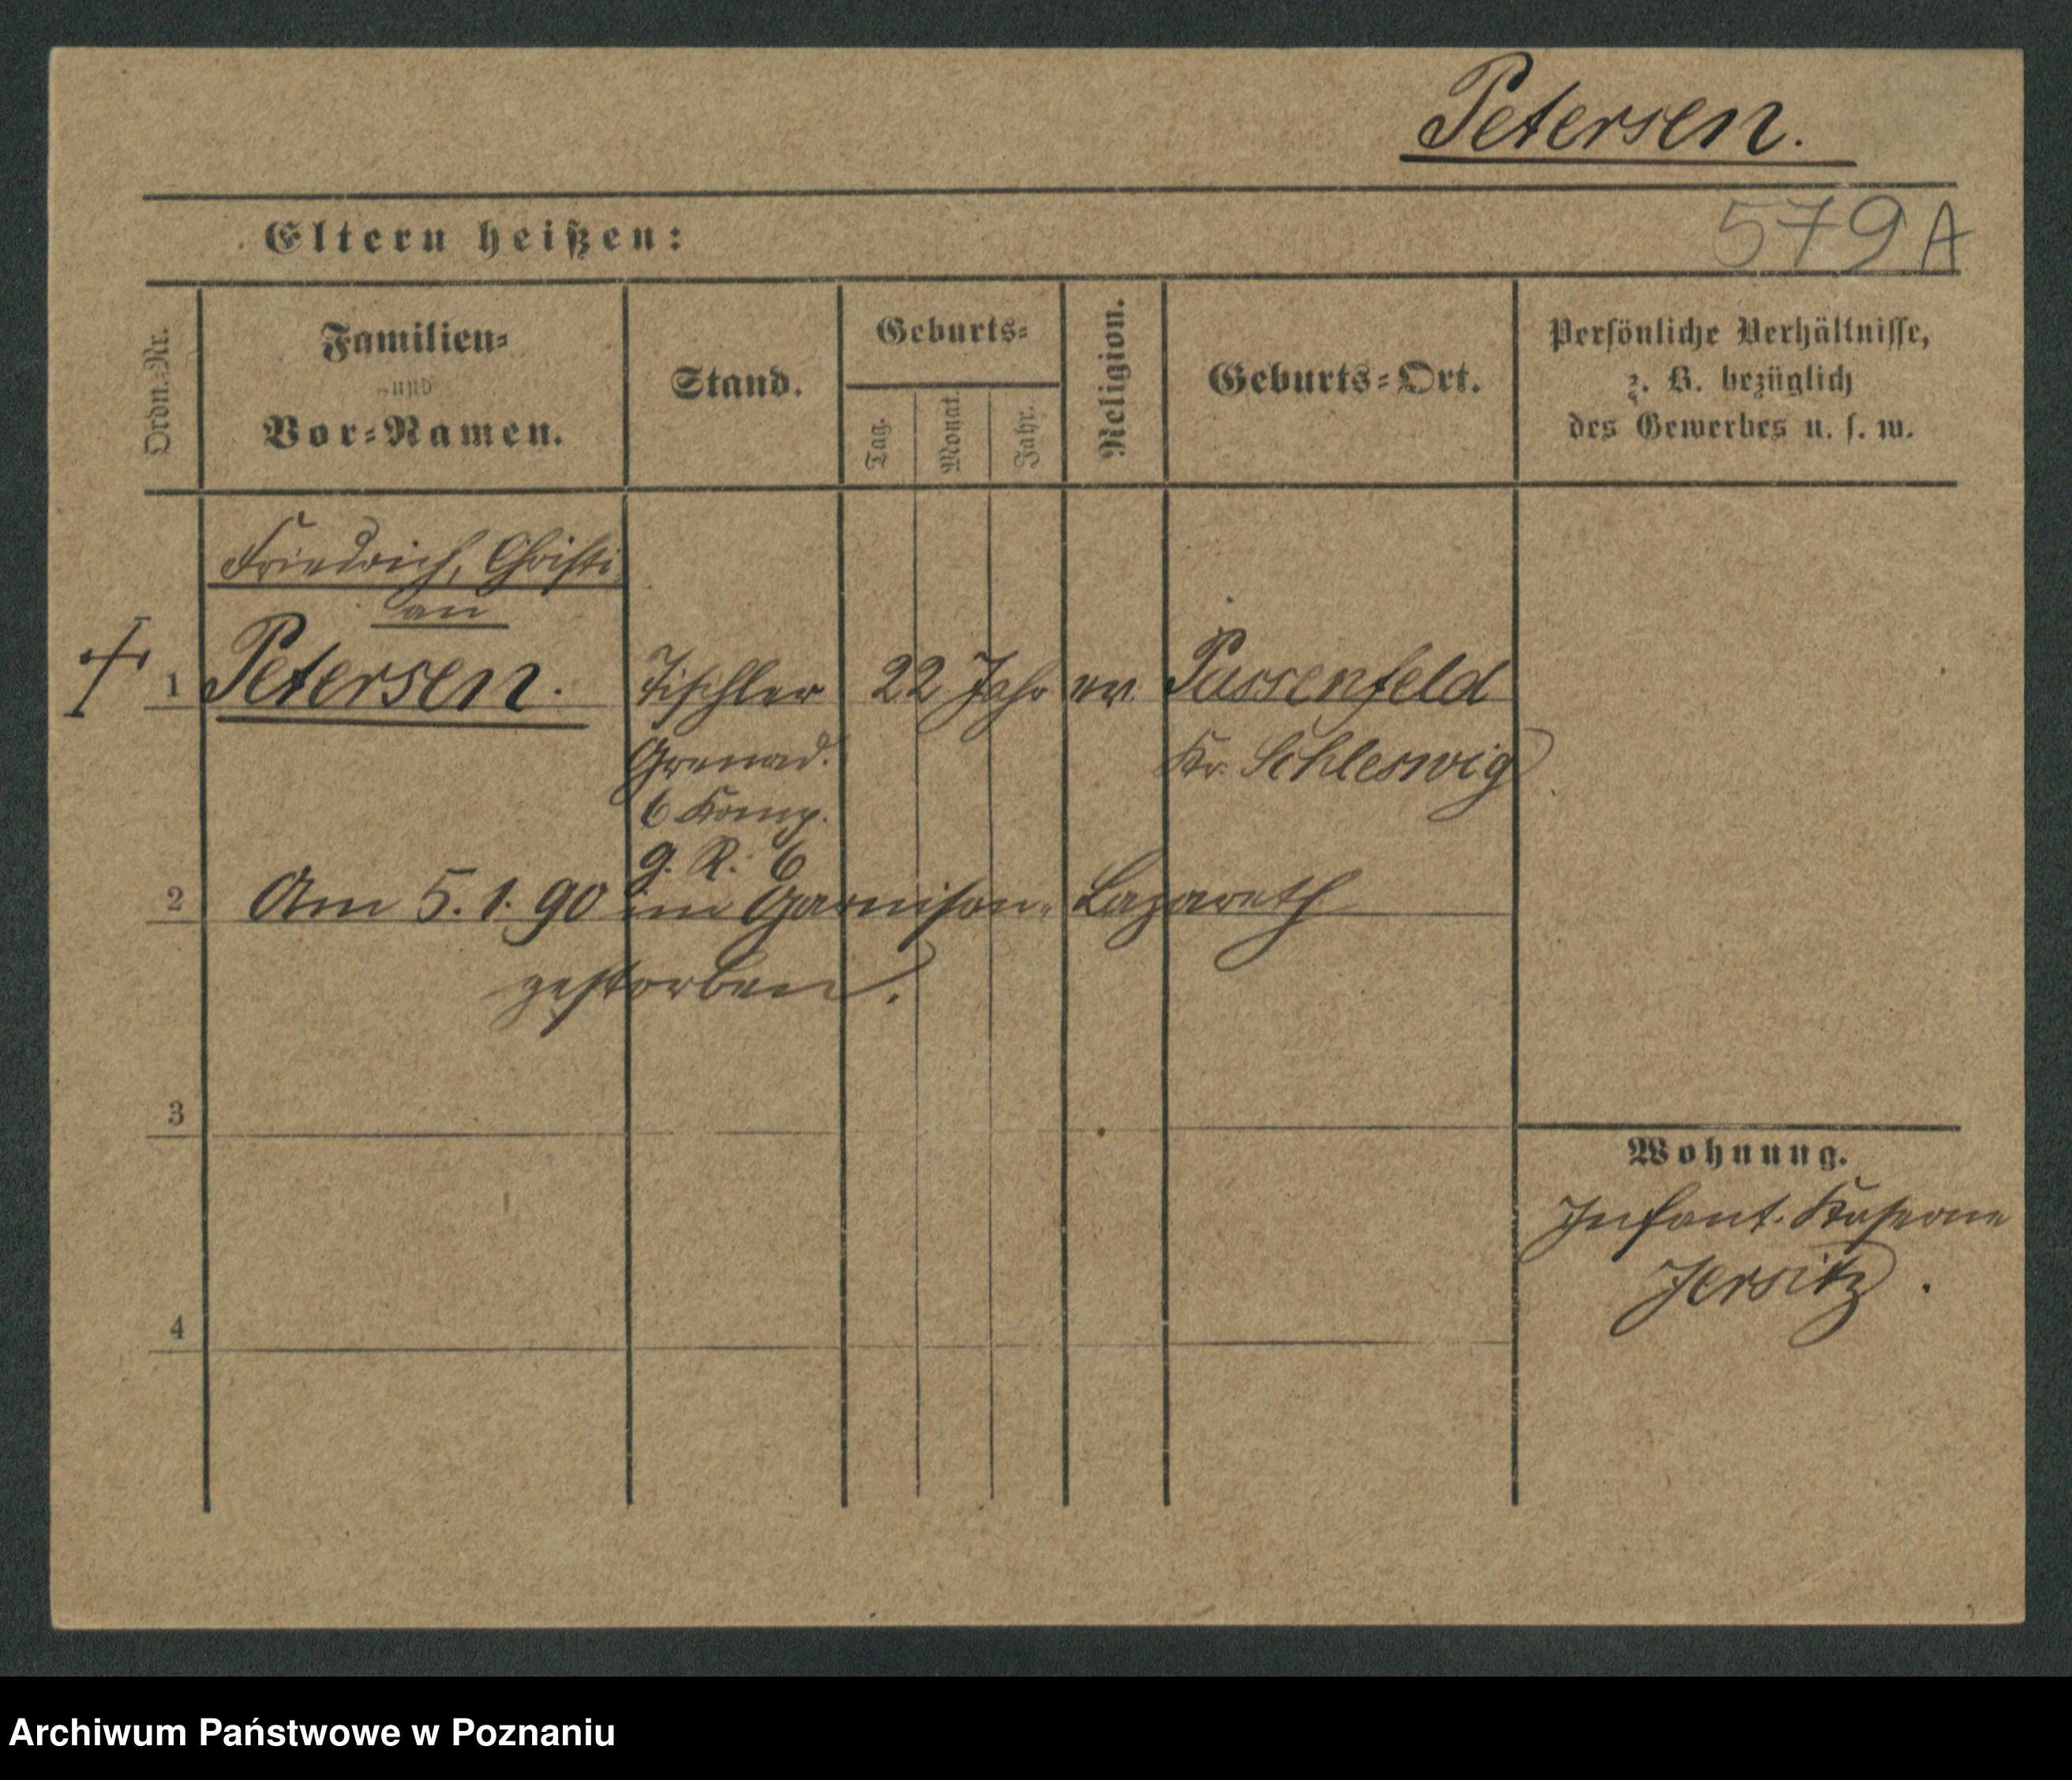 Petersen.
579 A
Eltern heißen:
Ordn.-Nr.
Familien-
und
Vor-Namen.
Stand.
Geburts-
Tag.
Monat.
Jahr.
Religion.
Geburts-Ort.
Persönliche Verhältnisse,
z. B. bezüglich
des Gewerbes u. s. w.
Friedrich, Christi
an
1 Petersen. Tischler 22 Jahr ev. Passenfeld
Grenad. Kr. Schleswig
6 Komp.
g. R. 6
2 Am 5. 1. 90 im Garnison-Lazareth
gestorben.
3
Wohnung.
Infant. Kaserne
Jersitz.
4
Archiwum Państwowe w Poznaniu